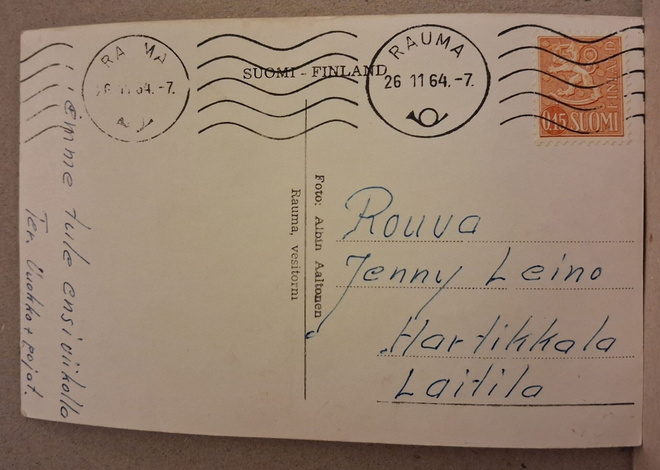 RAUMA
26 11 64.-7.
SUOMI - FINLAND
RAUMA
26 11 64.-7.
FINLAND
0,15 SUOMI
Emme tule ensi viikolla
Ter. Oukko + pojat.
Foto: Albin Aaltonen
Rauma, vesitorni
Rouva
Jenny Leino
Hartikkala
Laitila